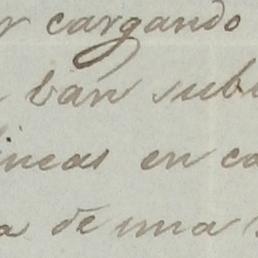 r cargando
van sub
lineas en ca
a de una s